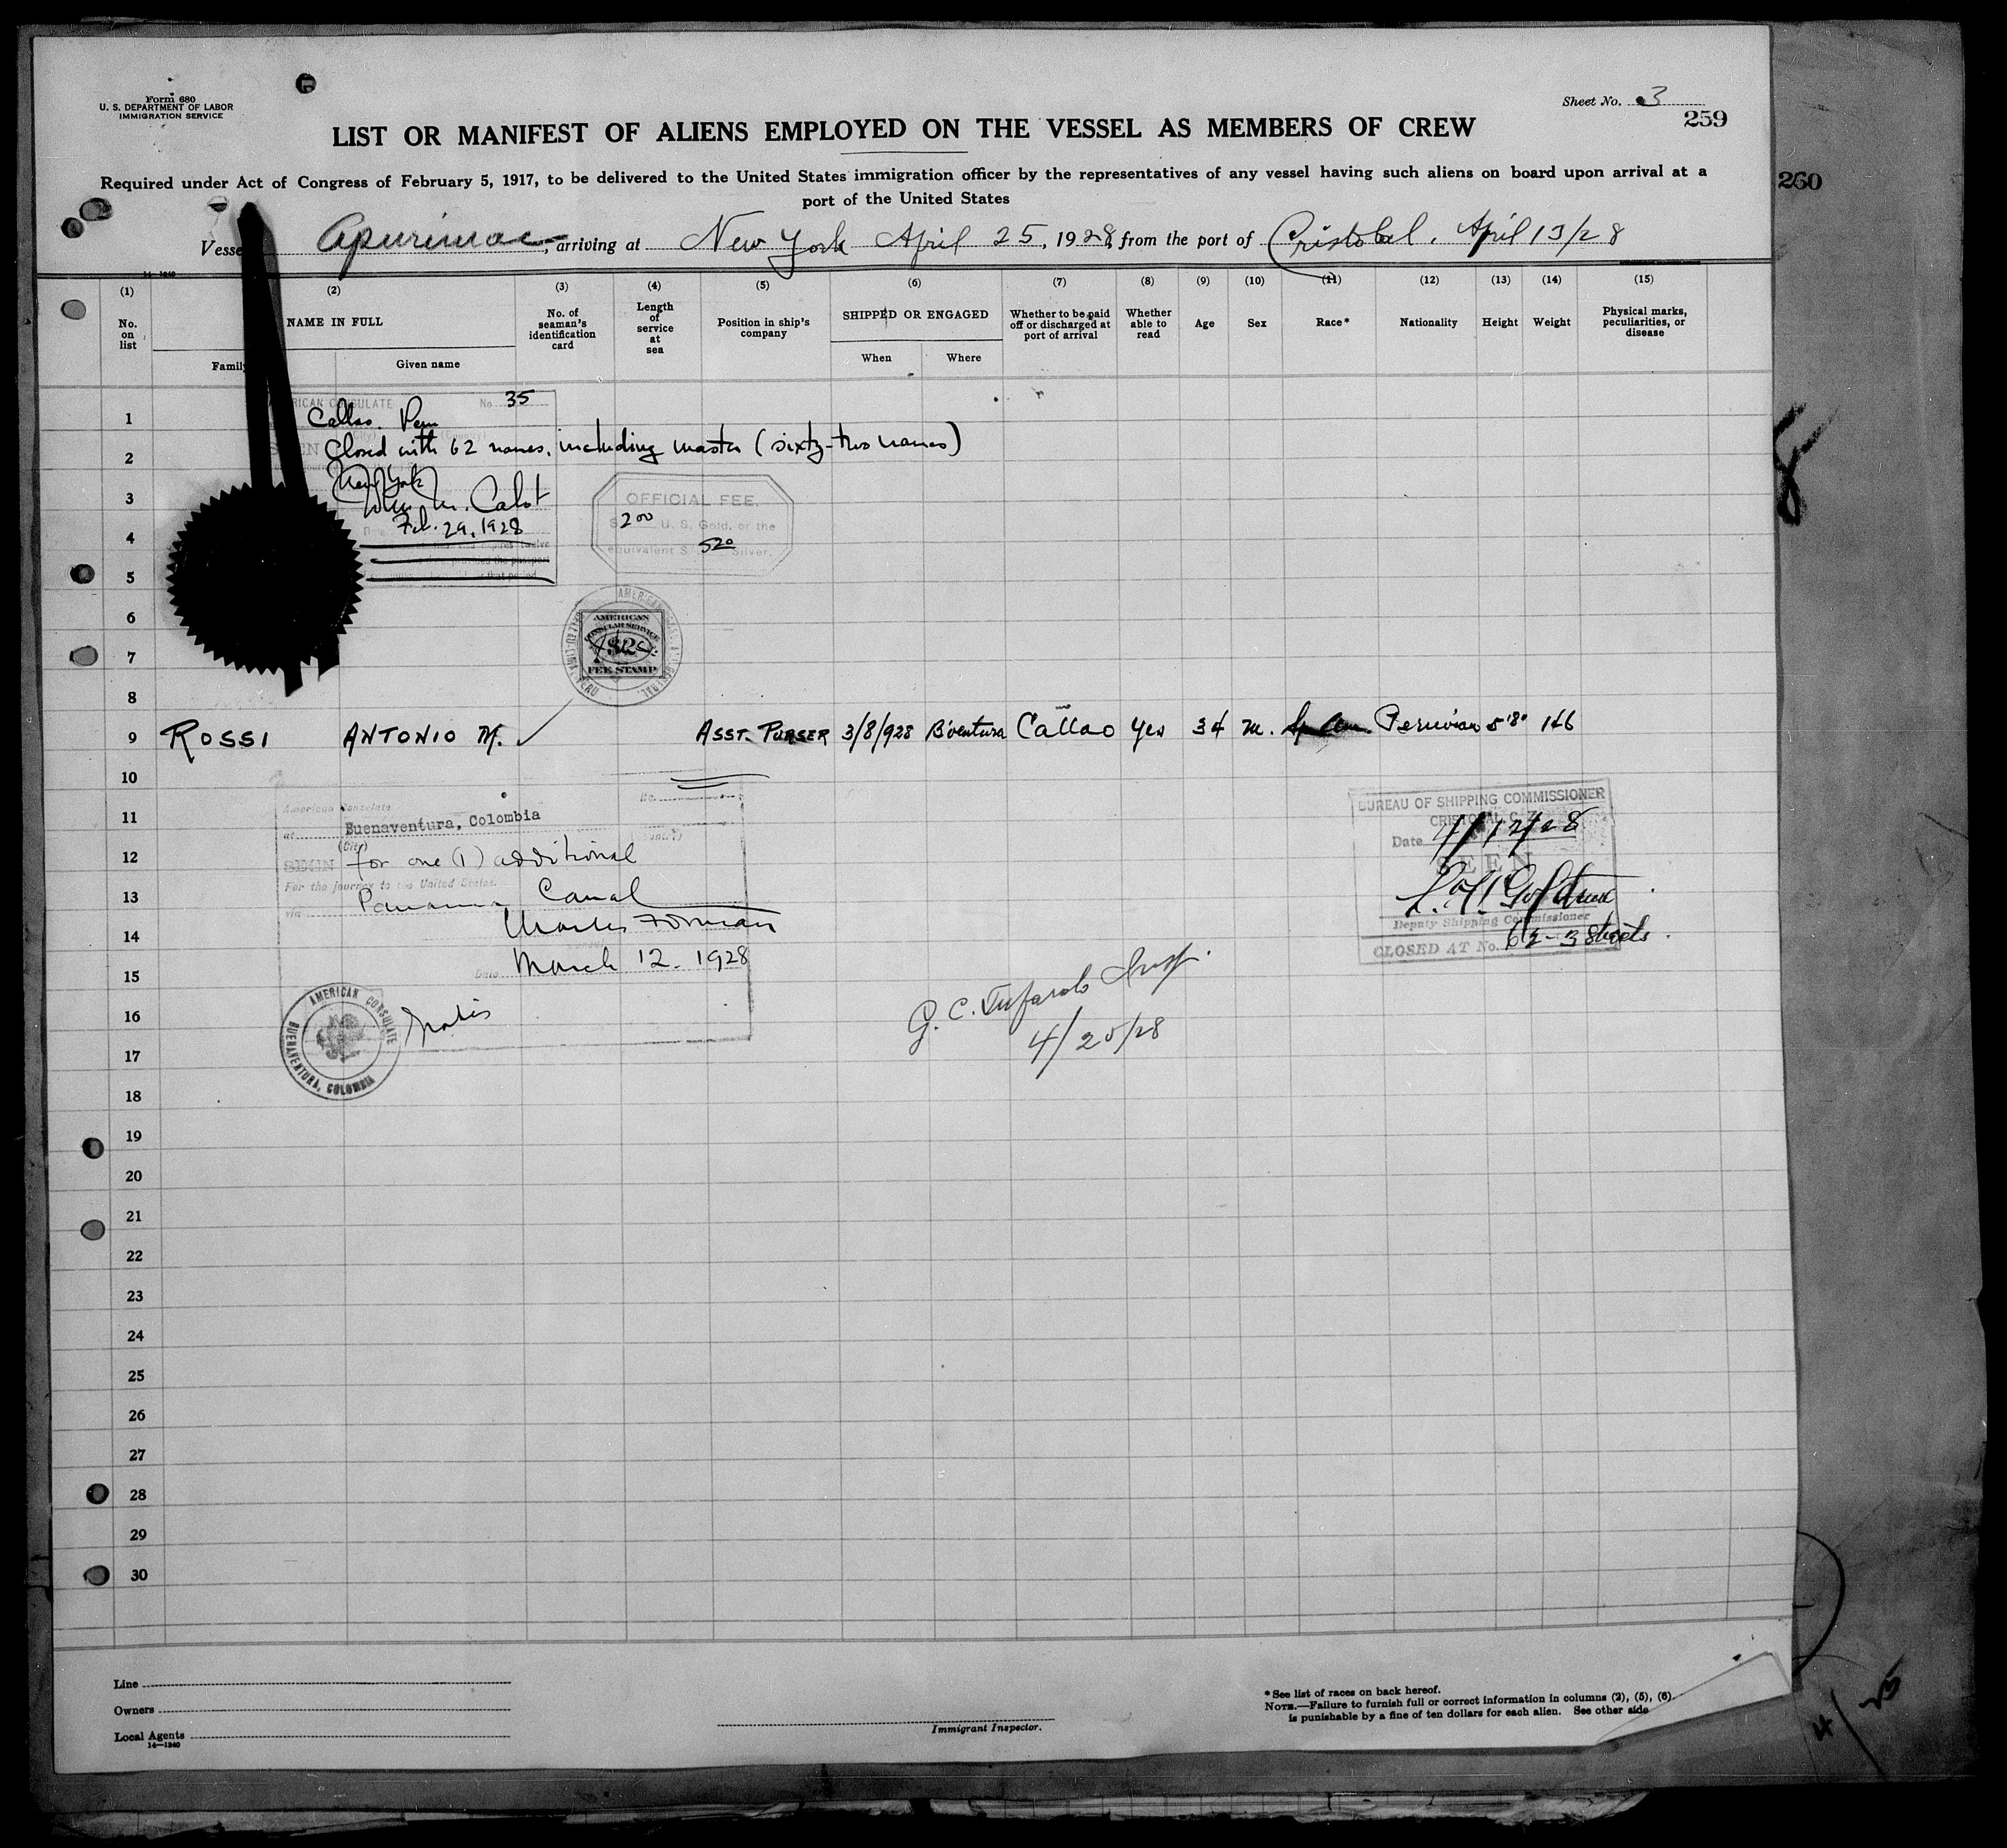 Form 680
U. S. DEPARTMENT OF LABOR
IMMIGRATION SERVICE
Sheet No. 3
259
260
LIST OR MANIFEST OF ALIENS EMPLOYED ON THE VESSEL AS MEMBERS OF CREW
Required under Act of Congress of February 5, 1917, to be delivered to the United States immigration officer by the representatives of any vessel having such aliens on board upon arrival at a
port of the United States
Vesse Apurimac, arriving at New York April 25, 1928, from the port of Cristobal, April 13/28
(1) (2) (3) (4) (5) (6) (7) (8) (9) (10) (11) (12) (13) (14) (15)
No. on list
NAME IN FULL
Family
Given name
No. of seaman's identification card
Length of service at sea
Position in ship's company
SHIPPED OR ENGAGED
When
Where
Whether to be paid off or discharged at port of arrival
Whether able to read
Age
Sex
Race*
Nationality
Height
Weight
Physical marks, peculiarities, or disease
RICAN CONSULATE No. 35
1
Callao. Peru
2
Closed with 62 names, including master (sixty-two names)
New York
3
Wm. M. Cabot
Feb. 29, 1928
OFFICIAL FEE.
$ 2 00 U. S. Gold, or the
equivalent $ 5 20 Silver.
4
5
6
AMERICAN
CONSULAR SERVICE
$2
FEE STAMP
7
8
9 ROSSI ANTONIO M. ASST. PURSER 3/8/928 B'ventura Callao Yes 34 M. Sp Am. Peruvian 5'8" 146
10
11
American Consulate
at Buenaventura, Colombia
(City)
12
SEEN for one (1) additional
For the journey to the United States.
13
via Panama Canal
14
Charles Forman
15
Date March 12. 1928
16
gratis
AMERICAN CONSULATE
BUENAVENTURA, COLOMBIA
BUREAU OF SHIPPING COMMISSIONER
CRISTOBAL, C. Z.
Date 4/12/28
SEEN
Deputy Shipping Commissioner
CLOSED AT No. 62 - 3 Sheets.
G. C. Tufarolo Insp.
4/25/28
17
18
19
20
21
22
23
24
25
26
27
28
29
30
Line
Owners
Local Agents
14—1240
Immigrant Inspector.
* See list of races on back hereof.
NOTE.—Failure to furnish full or correct information in columns (2), (5), (6)
is punishable by a fine of ten dollars for each alien. See other side
4/25